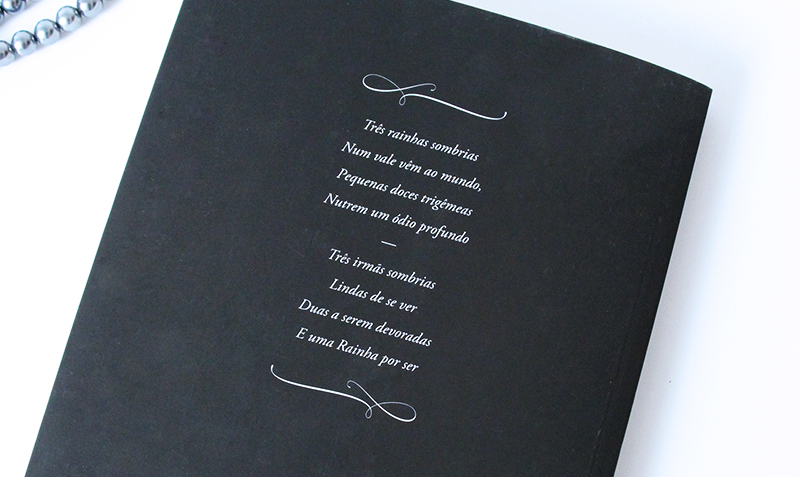 Três rainhas sombrias
Num vale vêm ao mundo,
Pequenas doces trigêmeas
Nutrem um ódio profundo
—
Três irmãs sombrias
Lindas de se ver
Duas a serem devoradas
E uma Rainha por ser